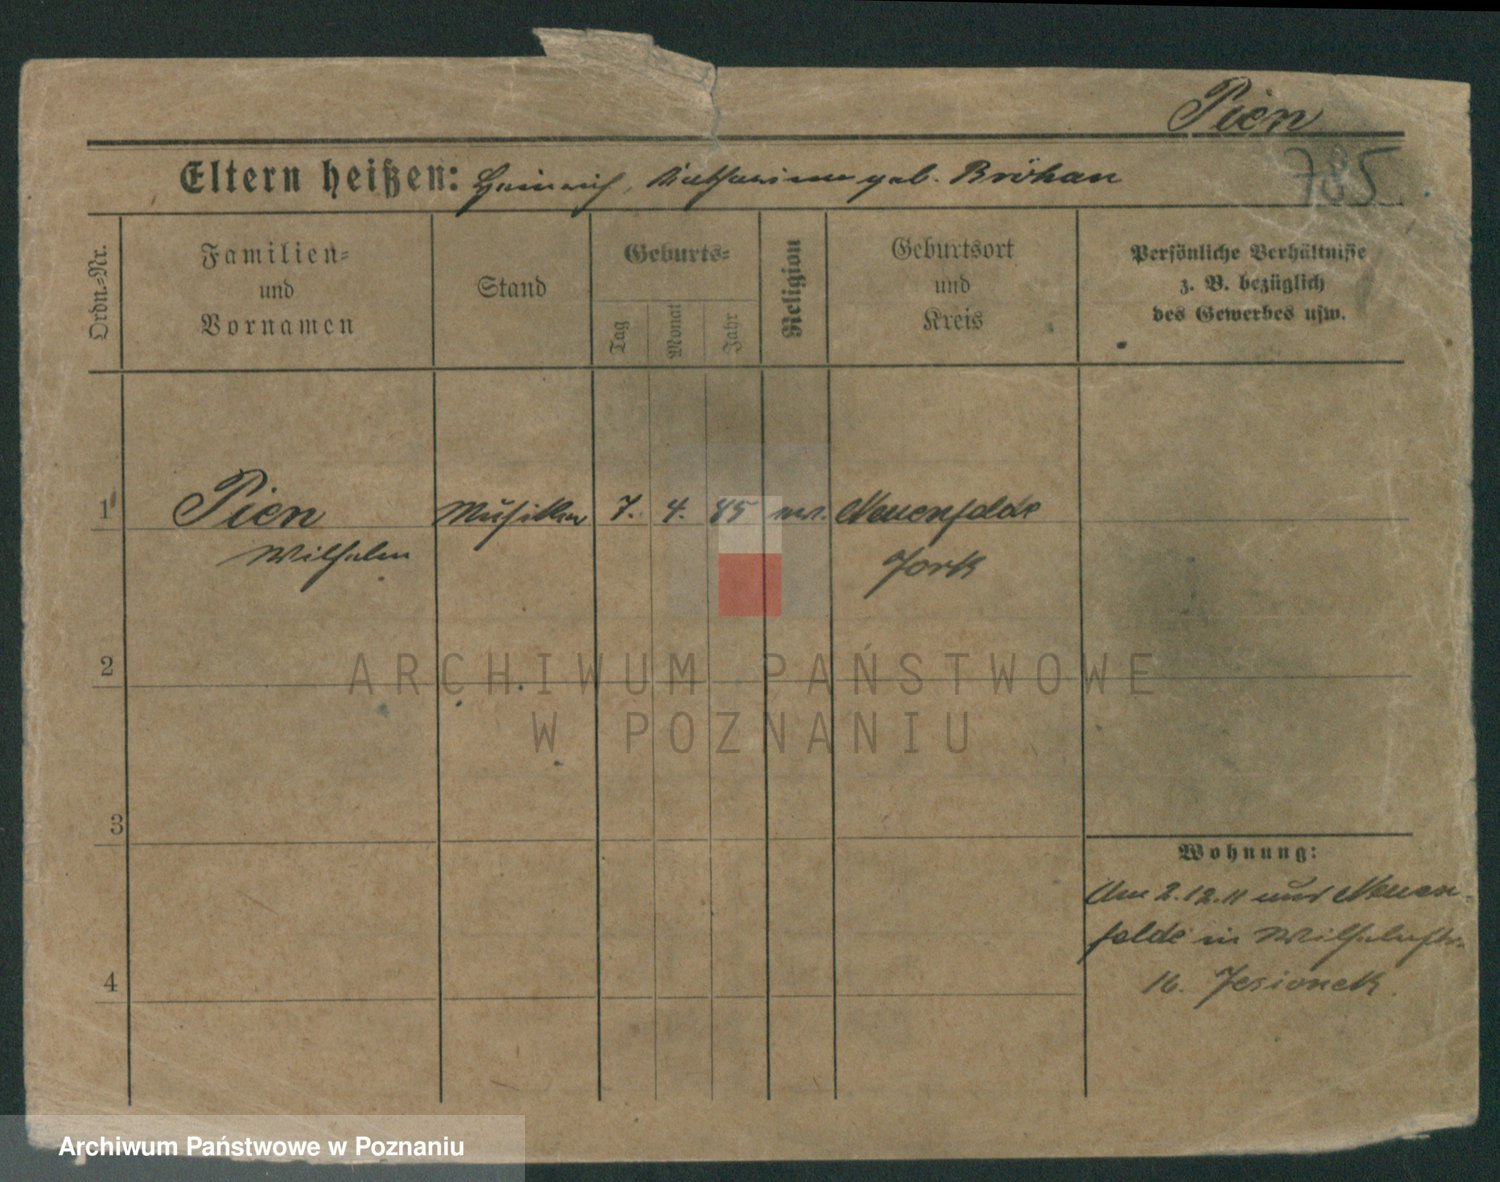 Pien
785
Eltern heißen: Heinrich, Katharina geb. Bröhan
Ordn.-Nr.
Familien-
und
Vornamen
Stand
Geburts-
Tag
Monat
Jahr
Religion
Geburtsort
und
Kreis
Persönliche Verhältnisse
z. B. bezüglich
des Gewerbes usw.
1 Pien Musiker 7. 4. 85 Neuenfelde
Wilhelm Jork
2
ARCHIWUM PAŃSTWOWE
W POZNANIU
3
Wohnung:
Am 2.12.11 aus Neuen-
felde in Wilhelmstr.
16. Jesionek
4
Archiwum Państwowe w Poznaniu